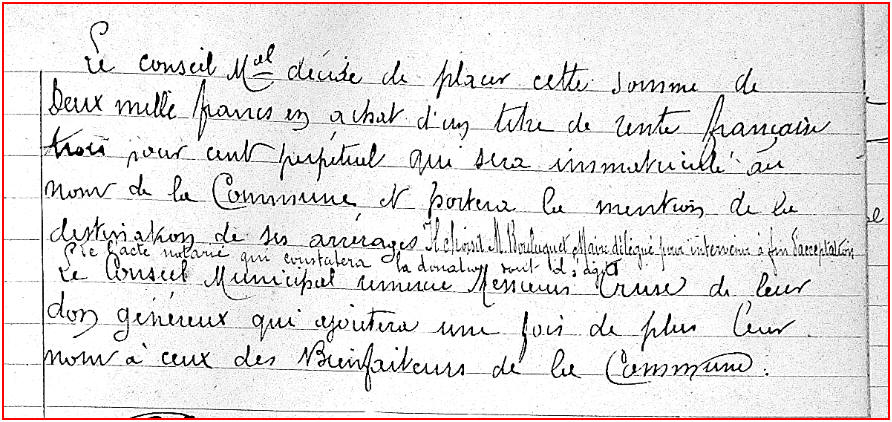 Le conseil Mal décide de placer cette somme de
Deux mille francs en achat d'un titre de rente française
trois pour cent perpétuel qui sera immatriculé au
nom de la Commune et portera la mention de la
destination de ses arrérages Il choisit M. Maire délégué pour intervenir à fin d'acceptation
de l'acte notarié qui constatera la donation dont il s'agit
Le Conseil Municipal remercie Messieurs Cruse de leur
don généreux qui ajoutera une fois de plus leur
nom à ceux des Bienfaiteurs de la Commune.